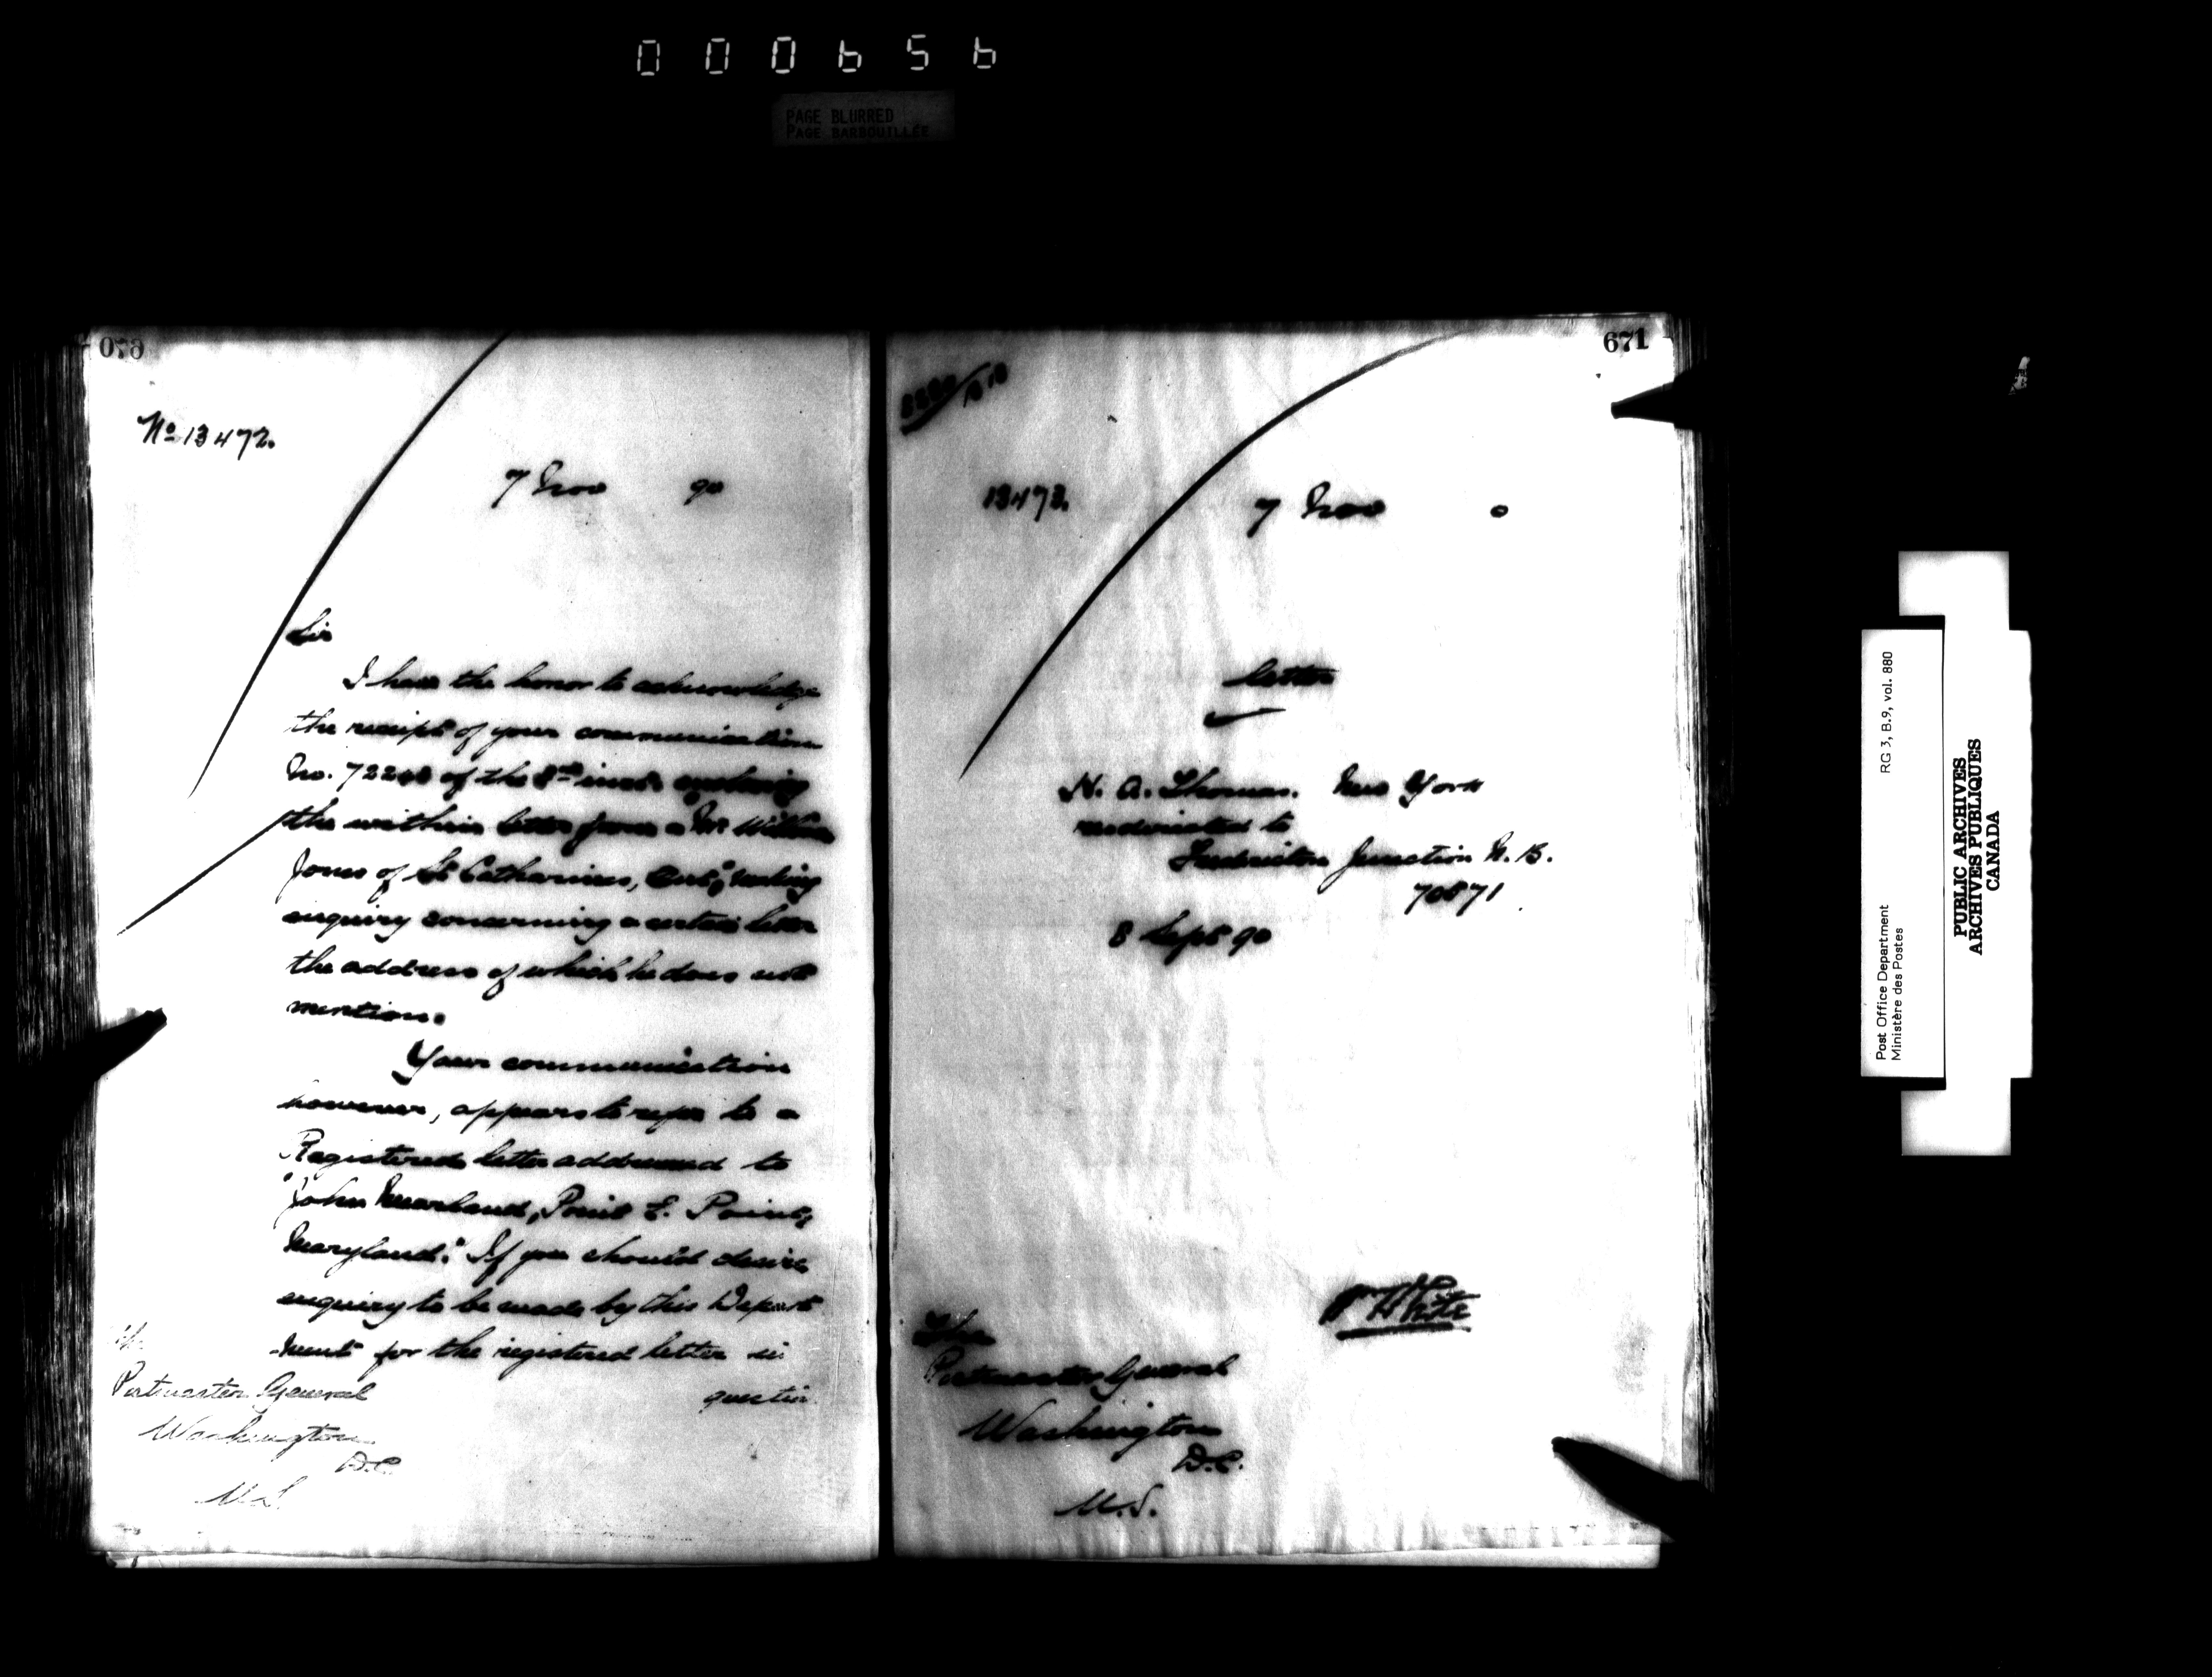 000656
PAGE BLURRED
PAGE BARBOUILLÉE
670
No 13472.
7 Nov 90
Sir
I have the honor to acknowledge
the receipt of your communication
No. of the inst. enclosing
the within letter from a Mr William
Jones of St Catharines, Ont., making
enquiry concerning a certain letter
the address of which he does not
mention.
Your communication
however, appears to refer to a
Registered letter addressed to
"John Point Point,
Maryland." If you should desire
enquiry to be made by this Depart
-ment for the registered letter in
question
The
Postmaster General
Washington
D.C.
U.S.
671
13473.
7 Nov 0
letter
H. A. Thomas. New York
redirected to
Fredericton Junction N.B.
70871
8 Sept 90
White
The
Postmaster General
Washington
D.C.
U.S.
Post Office Department
Ministère des Postes
RG 3, B.9, vol. 880
PUBLIC ARCHIVES
ARCHIVES PUBLIQUES
CANADA